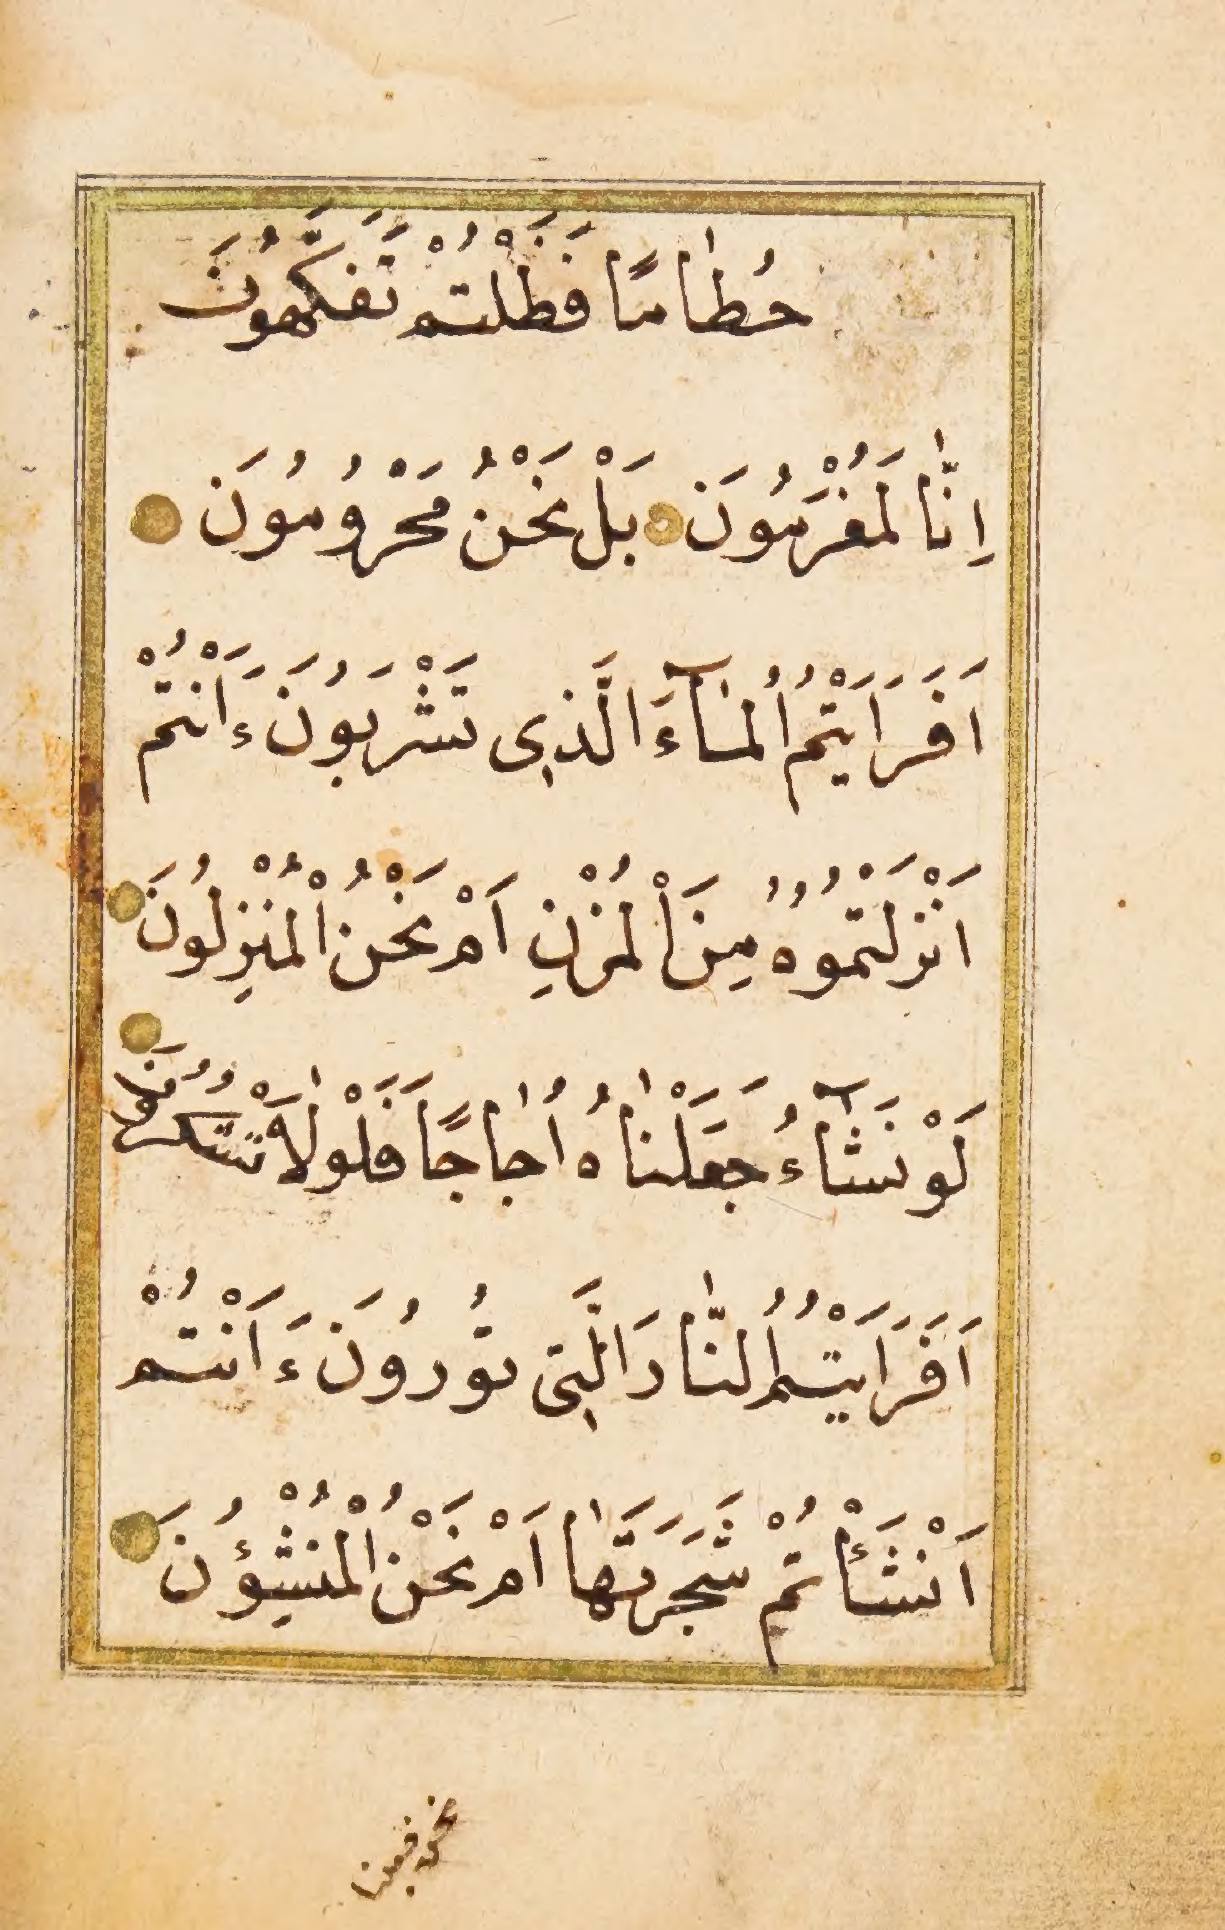 حُطٰامًا فَظَلْتُمْ تَفَكَّهُونَ
اِنّٰا لَمُغْرَمُونَ بَلْ نَحْنُ مَحْرُومُونَ
اَفَرَاَيْتُمُ الْمٰآءَ الَّذِى تَشْرَبُونَ ءَاَنْتُمْ
اَنْزَلْتُمُوهُ مِنَ الْمُزْنِ اَمْ نَحْنُ الْمُنْزِلُونَ
لَوْ نَشَآءُ جَعَلْنٰاهُ اُجٰاجًا فَلَوْلٰا تَشْكُرُونَ
اَفَرَاَيْتُمُ النّٰارَ الَّتِى تُورُونَ ءَاَنْتُمْ
اَنْشَأْتُمْ شَجَرَتَهٰا اَمْ نَحْنُ الْمُنْشِؤُنَ